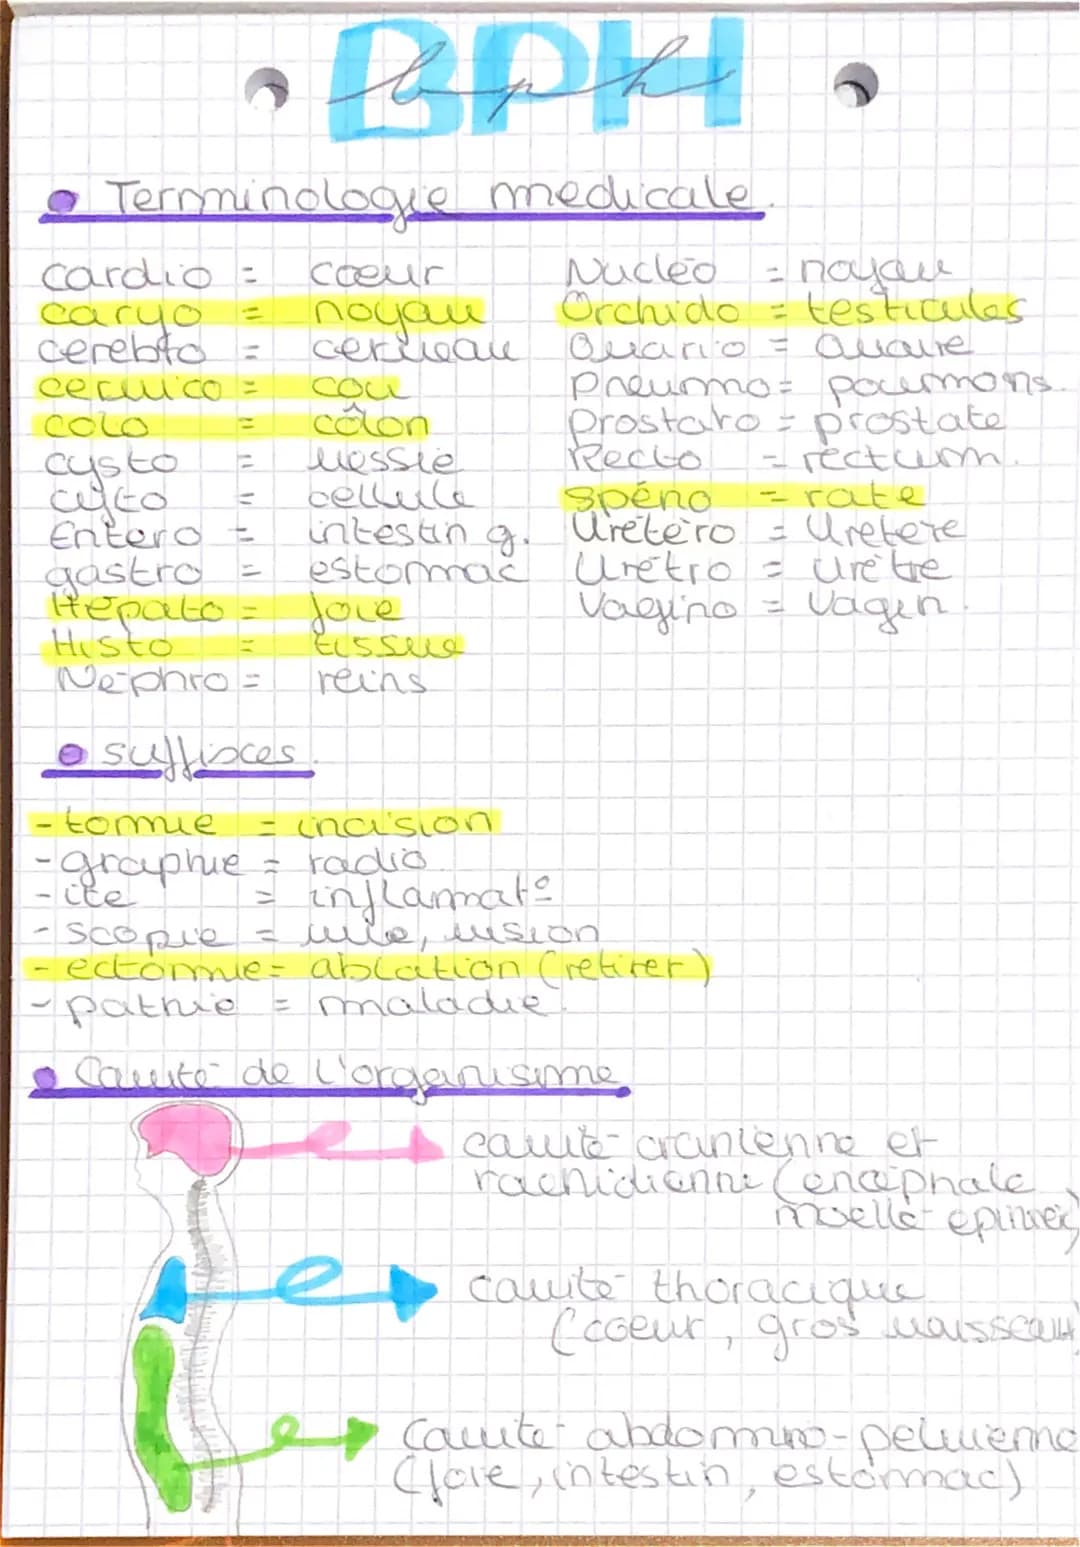 BPH
bph
Terminologie medicale.
cardio = coeur
caryo = noyau
cerebro = cerveau
cervico = cou
colo = côlon
cysto = vessie
cyto = cellule
Entero = intestin g.
gastro = estomac
Hépato = foie
Histo = tissue
Néphro = reins
Nucléo = noyau
Orchido = testicules
Ovario = ovaire
Pneumo = poumons.
Prostato = prostate
Recto = rectum.
spéno = rate
Urétéro = Uretère
Urétro = urètre
Vagino = Vagin.
suffixes.
- tomie = incision
- graphie = radio
- ite = inflammat°
- scopie = vue, vision
- ectomie = ablation (retirer)
- pathie = maladie.
Cavité de l'organisme
cavité crânienne et
rachidienne (encéphale
moelle épinière)
cavité thoracique
(coeur, gros vaisseaux)
Cavité abdomino-pelvienne
(foie, intestin, estomac)